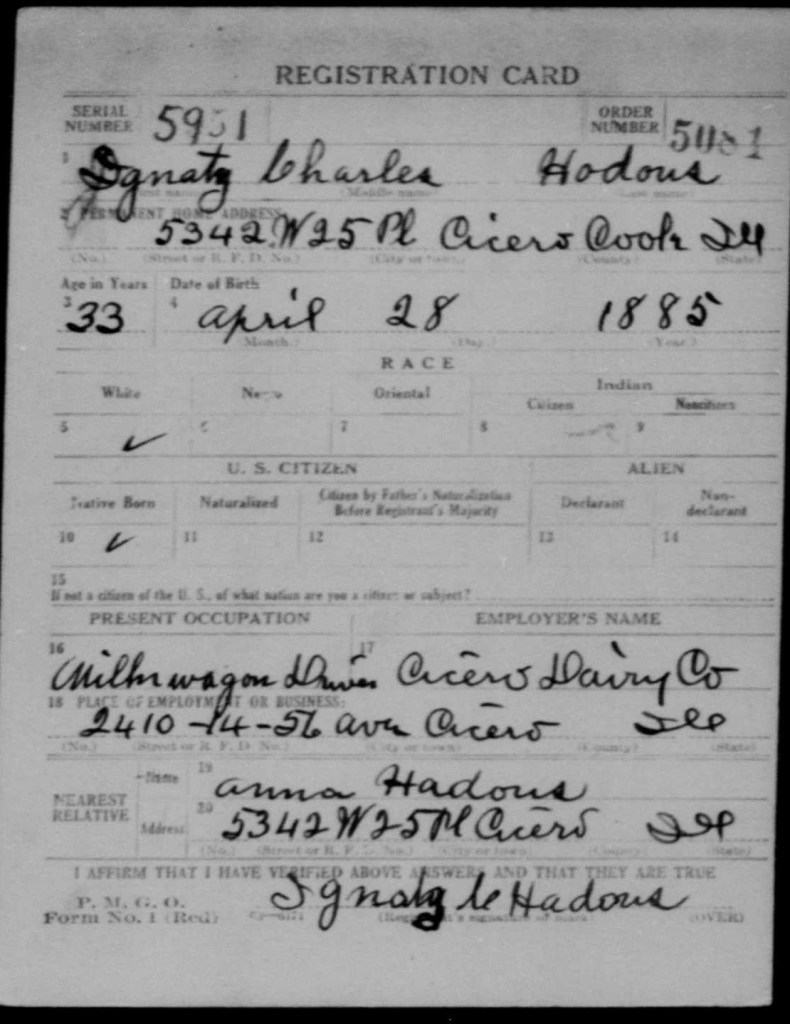 REGISTRATION CARD
SERIAL NUMBER 5951 ORDER NUMBER 5081
1 Ignatz Charles Hodous
(First name) (Middle name) (Last name)
2 PERMANENT HOME ADDRESS:
5342 W 25 Pl Cicero Cook Ill
(No.) (Street or R. F. D. No.) (City or town) (County) (State)
Age in Years Date of Birth
3 33 4 April 28 1885
(Month.) (Day.) (Year.)
RACE
White Negro Oriental Indian
Citizen Noncitizen
5 ✓ 6 7 8 9
U. S. CITIZEN ALIEN
Native Born Naturalized Citizen by Father's Naturalization Before Registrant's Majority Declarant Non-declarant
10 ✓ 11 12 13 14
15
If not a citizen of the U. S., of what nation are you a citizen or subject?
PRESENT OCCUPATION EMPLOYER'S NAME
16 Milk wagon Driver 17 Cicero Dairy Co
18 PLACE OF EMPLOYMENT OR BUSINESS:
2410-14-56 Ave Cicero Ill
(No.) (Street or R. F. D. No.) (City or town) (County) (State)
NEAREST RELATIVE Name 19 Anna Hadous
Address 20 5342 W 25 Pl Cicero Ill
(No.) (Street or R. F. D. No.) (City or town) (County) (State)
I AFFIRM THAT I HAVE VERIFIED ABOVE ANSWERS AND THAT THEY ARE TRUE
P. M. G. O.
Form No. 1 (Red) Ignatz C Hadous
(Registrant's signature or mark) (OVER)